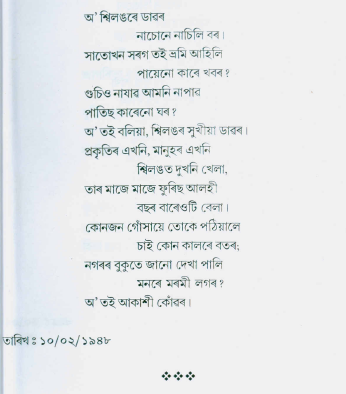 অ' শ্বিলঙৰে ডাৱৰ
নাচোনে নাচিলি বৰ।
সাতোখন সৰগ তই ভ্ৰমি আহিলি
পায়েনো কাৰে খবৰ?
গুচিও নাযাৱ আমনি নাপাৱ
পাতিছ কাৰেনো ঘৰ?
অ' তই বলিয়া, শ্বিলঙৰ সুখীয়া ডাৱৰ।
প্ৰকৃতিৰ এখনি, মানুহৰ এখনি
শ্বিলঙত দুখনি খেলা,
তাৰ মাজে মাজে ফুৰিছ আলহী
বছৰ বাৰেওটি বেলা।
কোনজন গোঁসায়ে তোকে পঠিয়ালে
চাই কোন কালৰে বতৰ;
নগৰৰ বুকুতে জানো দেখা পালি
মনৰে মৰমী লগৰ?
অ' তই আকাশী কোঁৱৰ।
তাৰিখ ঃ ১০/০২/১৯৪৮